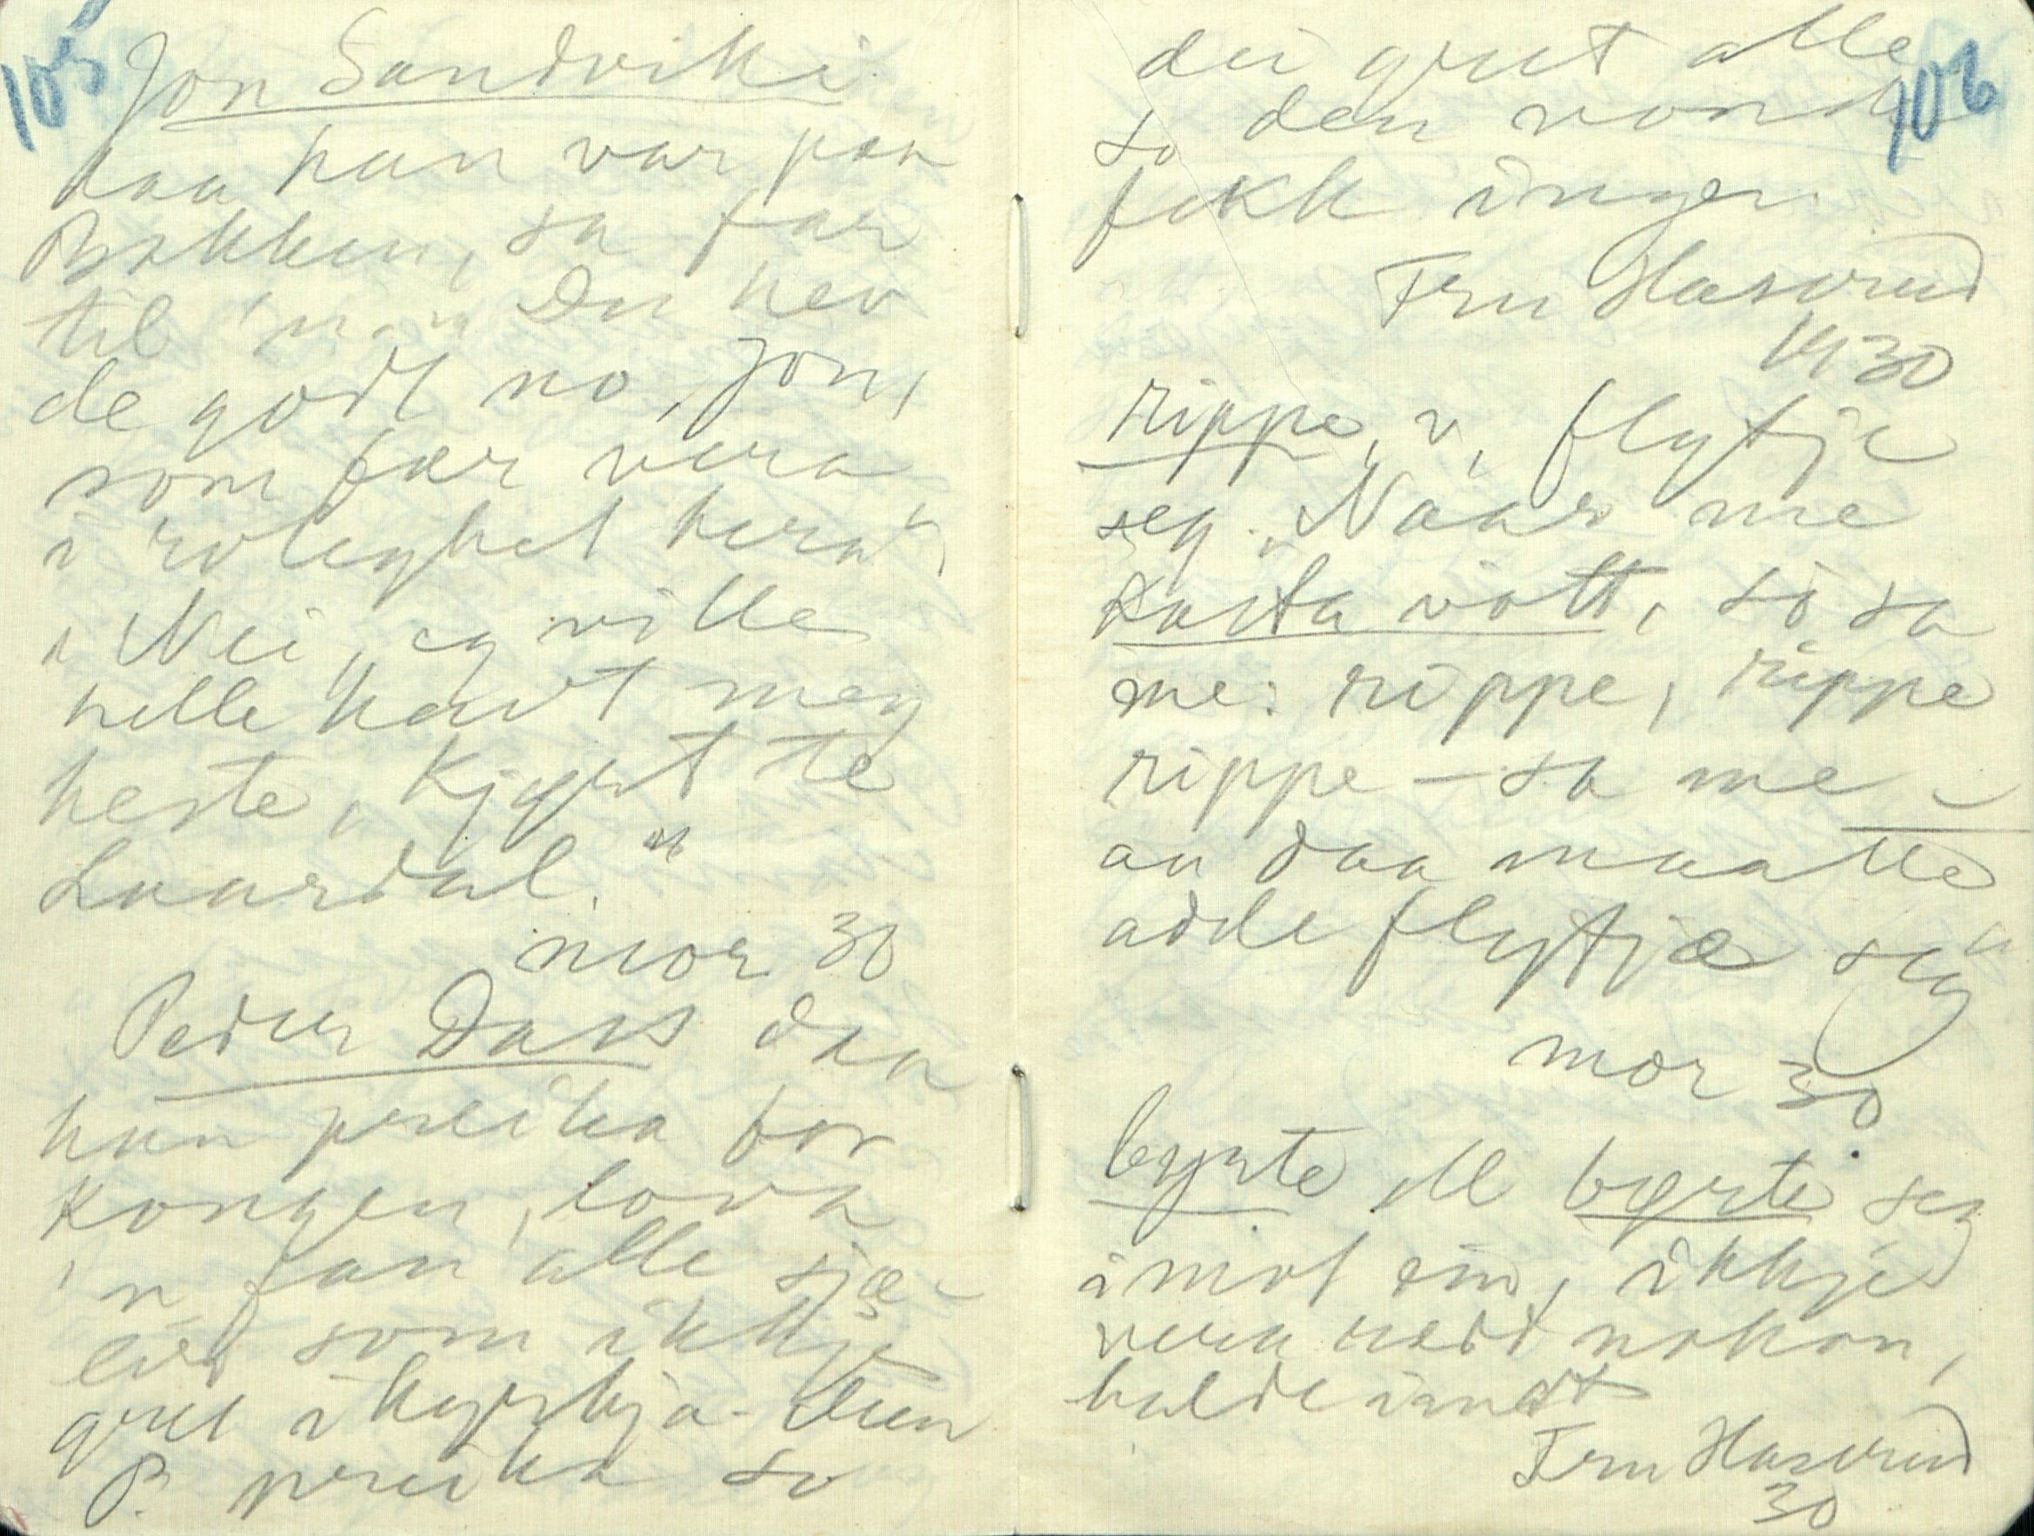 105
Jon Sandviki
daa han var paa
Bakken, sa far
til 'n: "Du hev
de godt no, Jon,
som fær vera
i rolighet hera",
"Nei, eg ville
helle havt meg
heste, kjøyrt te
Laardal."
mor 30
Peder Dass daa
han preika for
kongen, lova
'n fan alle sjæ-
lér som ikkje
gret i kyrkja. Men
P. preika so
106
dei gret alle
so den vonde
fekk ingen.
Fru Hasvrud
1930
rippe, v, flytje
seg. Naar me
kasta vott, so sa
me: rippe, rippe
rippe – sa me –
au daa maatte
adde flytjæ seg"
mor 30
byrte ell byrte seg
imot ein, ikkje
vera redd nokon,
halde imot
Fru Hasvrud
30